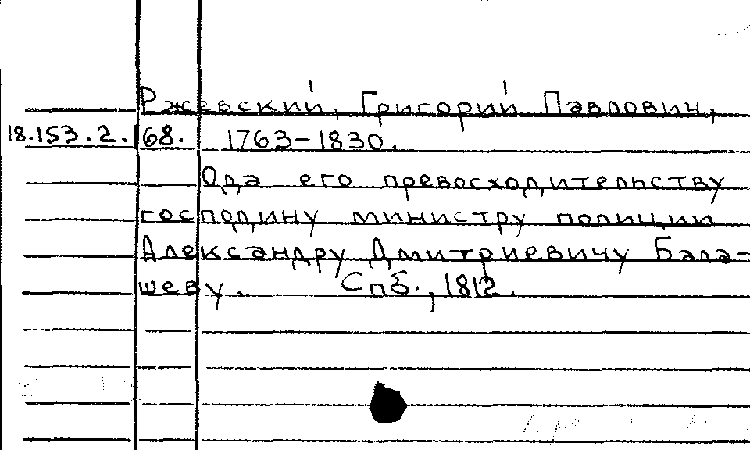 Ржевский, Григорий Павлович,
18.153.2.168. 1763-1830.
Ода его превосходительству
господину министру полиции
Александру Дмитриевичу Бала-
шеву. Спб., 1812.